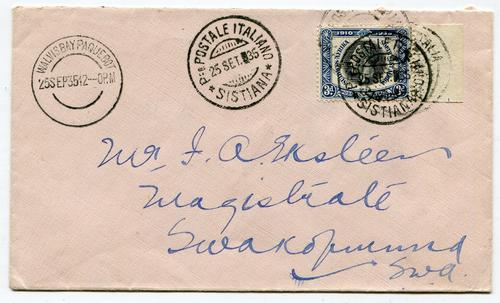 WALVIS BAY PAQUEBOT
25SEP3512--0PM
Pfo POSTALE ITALIANO
25 SET. 35
* SISTIANA *
1910 1935
3d 3d
SISTIANA
Mr I. A. Eksteen
Magistrate
Swakopmund
Swa.